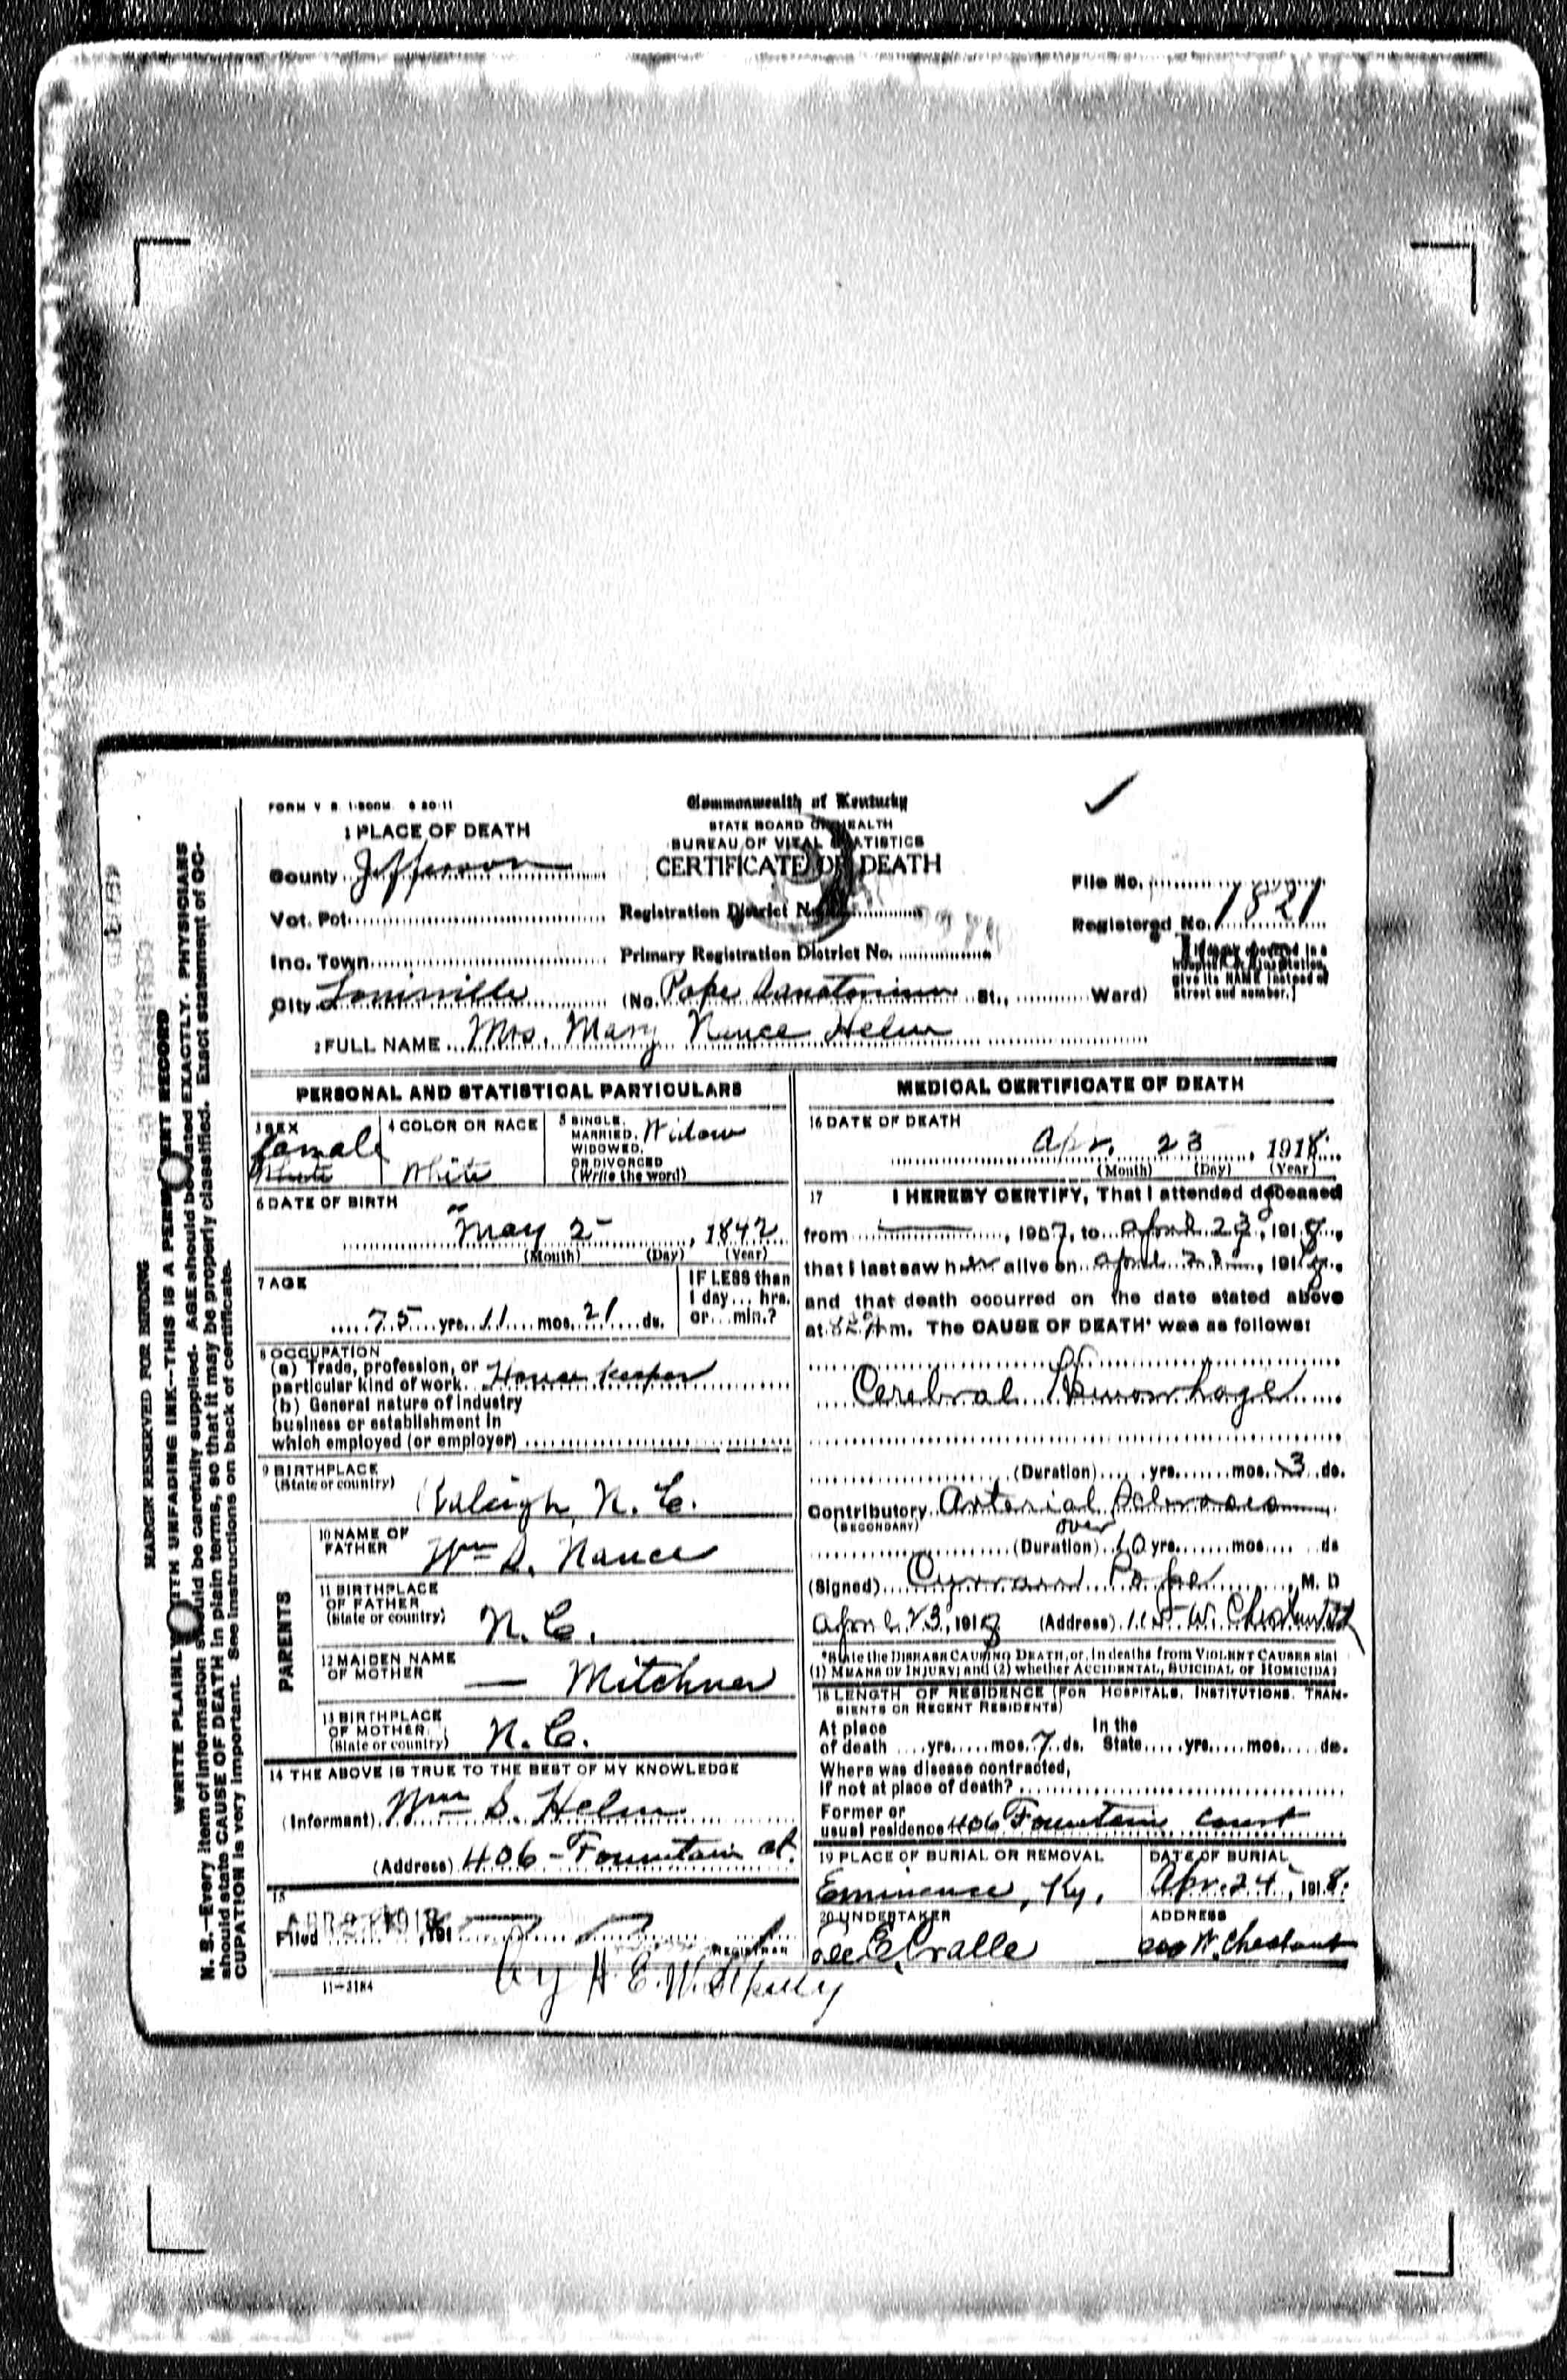 FORM V S. 1-500M. 6 20-11
Commonwealth of Kentucky
STATE BOARD OF HEALTH
BUREAU OF VITAL STATISTICS
CERTIFICATE OF DEATH
1 PLACE OF DEATH
County Jefferson
Vot. Pct.
Inc. Town
City Louisville
Registration District No.
Primary Registration District No.
(No. Pope Sanatorium St., Ward)
File No.
Registered No. 1821
give its NAME instead of
street and number.]
2 FULL NAME Mrs. Mary Nance Helm
PERSONAL AND STATISTICAL PARTICULARS
3 SEX
female
White
4 COLOR OR RACE
White
5 SINGLE,
MARRIED,
WIDOWED,
OR DIVORCED
(Write the word)
Widow
6 DATE OF BIRTH
May 2, 1842
(Month) (Day) (Year)
7 AGE
75 yrs. 11 mos. 21 ds.
IF LESS than
1 day... hrs.
or...min.?
8 OCCUPATION
(a) Trade, profession, or
particular kind of work. House keeper
(b) General nature of industry
business or establishment in
which employed (or employer)
9 BIRTHPLACE
(State or country)
Raleigh, N. C.
PARENTS
10 NAME OF
FATHER
Wm S. Nance
11 BIRTHPLACE
OF FATHER
(State or country)
N. C.
12 MAIDEN NAME
OF MOTHER
— Mitchner
13 BIRTHPLACE
OF MOTHER
(State or country)
N. C.
14 THE ABOVE IS TRUE TO THE BEST OF MY KNOWLEDGE
(Informant) Wm S. Helm
(Address) 406 - Fountain ct.
15
Filed , 191
REGISTRAR
By H. E.
11-3184
MEDICAL CERTIFICATE OF DEATH
16 DATE OF DEATH
Apr. 23, 1918
(Month) (Day) (Year)
17 I HEREBY CERTIFY, That I attended deceased
from , 1907, to April 23, 1918,
that I last saw her alive on April 23, 1918,
and that death occurred on the date stated above
at m. The CAUSE OF DEATH* was as follows:
Cerebral Hemorrhage
(Duration) yrs. mos. 3 ds.
Contributory Arterial Sclerosis
(SECONDARY)
over
(Duration) 10 yrs. mos. ds
(Signed) Curran Pope, M. D
April 23, 1918 (Address) W. Chestnut St
*State the DISEASE CAUSING DEATH, or, in deaths from VIOLENT CAUSES stat
(1) MEANS OF INJURY; and (2) whether ACCIDENTAL, SUICIDAL or HOMICIDAL
18 LENGTH OF RESIDENCE (FOR HOSPITALS, INSTITUTIONS, TRAN-
SIENTS OR RECENT RESIDENTS)
At place
of death yrs. mos. 7 ds.
In the
State yrs. mos. ds.
Where was disease contracted,
if not at place of death?
Former or
usual residence 406 Fountain court
19 PLACE OF BURIAL OR REMOVAL
Eminence, Ky.
DATE OF BURIAL
Apr. 24, 1918.
20 UNDERTAKER
Lee E. Cralle
ADDRESS
W. Chestnut
MARGIN RESERVED FOR BINDING
WRITE PLAINLY WITH UNFADING INK—THIS IS A PERMANENT RECORD
N. B.—Every item of information should be carefully supplied. AGE should be stated EXACTLY. PHYSICIANS
should state CAUSE OF DEATH in plain terms, so that it may be properly classified. Exact statement of OC-
CUPATION is very important. See instructions on back of certificate.